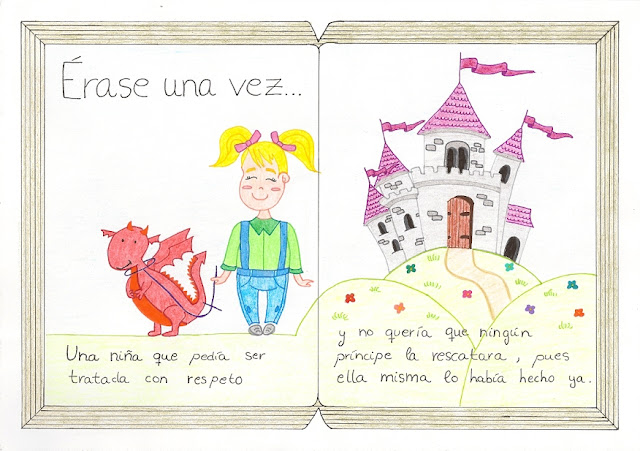 Érase una vez...
Una niña que pedía ser
tratada con respeto
y no quería que ningún
príncipe la rescatara, pues
ella misma lo había hecho ya.